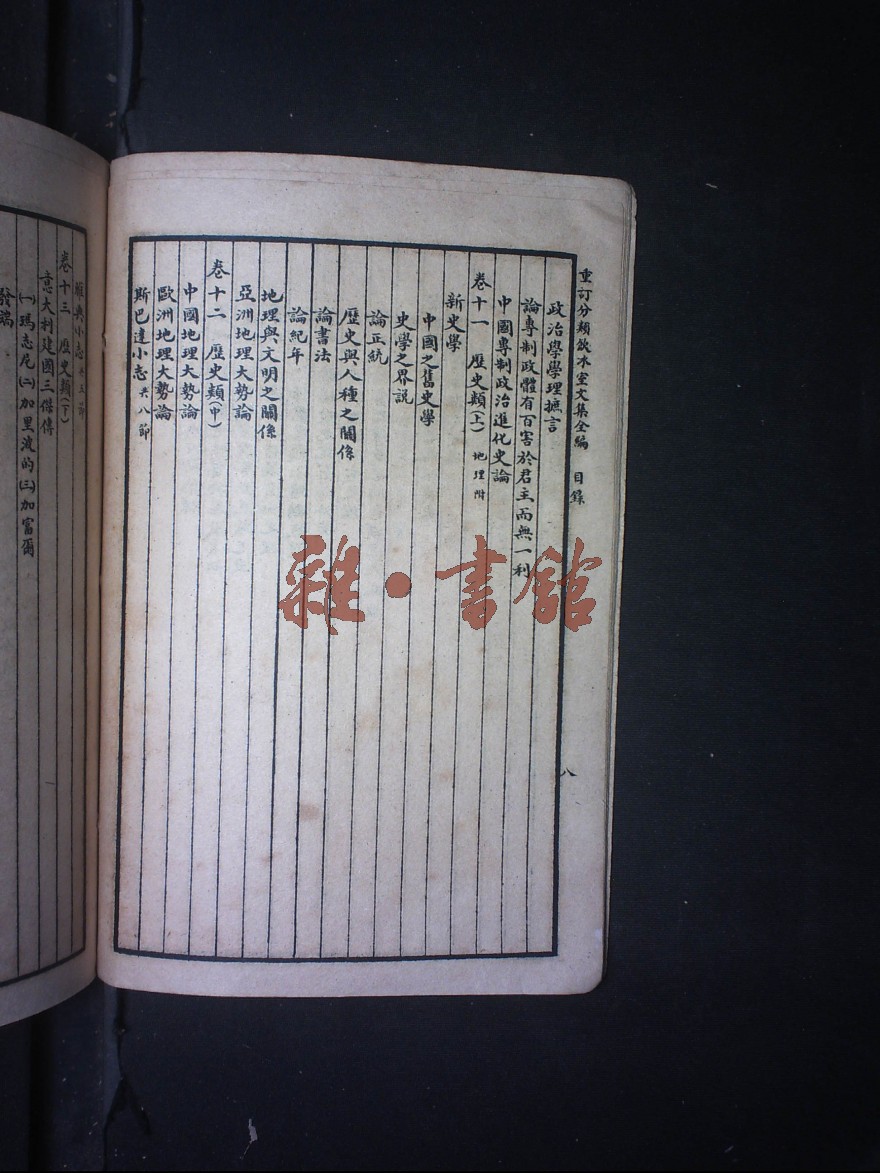 重訂分類飲冰室文集全編 目錄
八
政治學學理摭言
論專制政體有百害於君主而無一利
中國專制政治進化史論
卷十一 歷史類(上) 地理附
新史學
中國之舊史學
史學之界說
論正統
歷史與人種之關係
論書法
論紀年
地理與文明之關係
亞洲地理大勢論
卷十二 歷史類(中)
中國地理大勢論
歐洲地理大勢論
斯巴達小志 共八節
雅典小志 共五節
卷十三 歷史類(下)
意大利建國三傑傳
(一)瑪志尼(二)加里波的(三)加富爾
發端
雜·書館